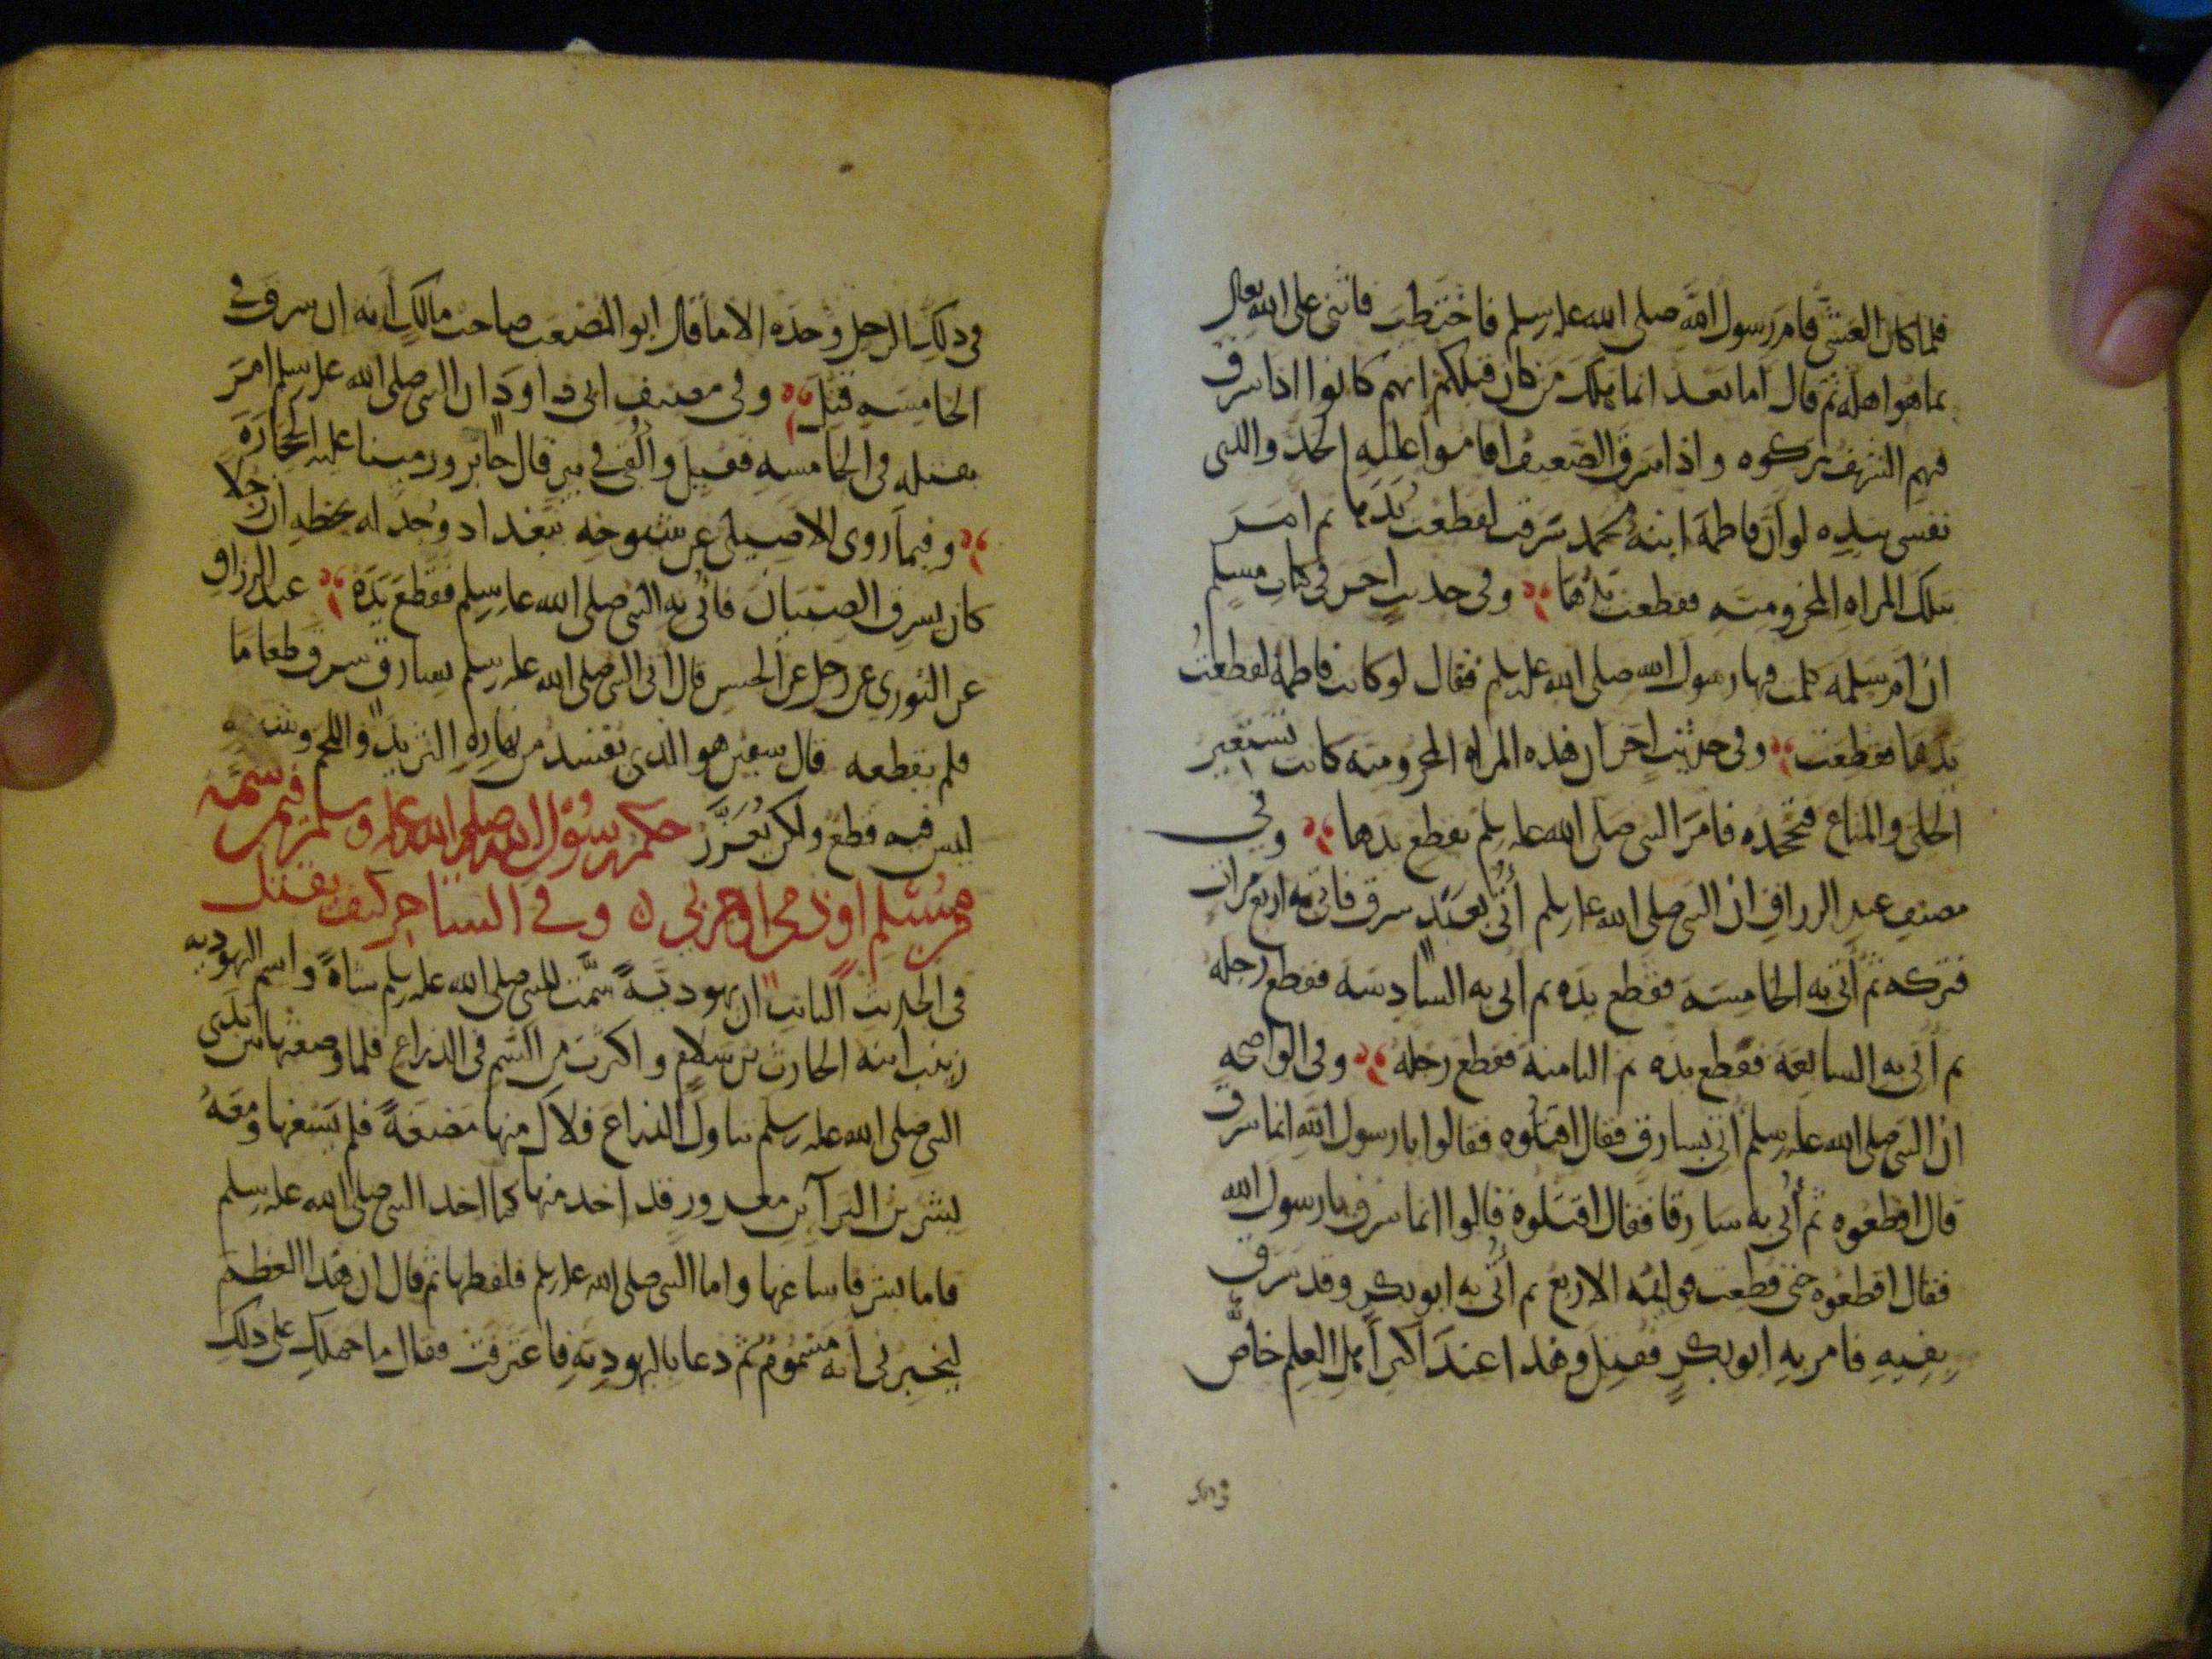 فلما كان العشى قام رسول الله صلى الله عليه وسلم فاختطب فاثنى على الله تعالى
بما هو اهله ثم قال اما بعد انما هلك من كان قبلكم انهم كانوا اذا سرق
فيهم الشريف تركوه واذا سرق الضعيف اقاموا عليه الحد والذى
نفسى بيده لو ان فاطمة ابنة محمد سرقت لقطعت يدها ثم امر
بتلك المراه المخزوميه فقطعت يدها وفى حديث اخر فى كتاب مسلم
ان ام سلمه كلمت فيها رسول الله صلى الله عليه وسلم فقال لو كانت فاطمة لقطعت
يدها فقطعت وفى حديث اخر ان هذه المراه المخزوميه كانت تستعير
الحلى والمتاع فتجحده فامر النبى صلى الله عليه وسلم بقطع يدها وفي
مصنف عبد الرزاق ان النبى صلى الله عليه وسلم أتى بعبد سرق فاتى به اربع مرات
فتركه ثم أتى به الخامسه فقطع يده ثم اتى به السادسه فقطع رجله
ثم أتى به السابعة فقطع يده ثم الثامنة فقطع رجله وفى الواضحه
ان النبى صلى الله عليه وسلم أتى بسارق فقال اقتلوه فقالوا يا رسول الله انما سرق
قال اقطعوه ثم أتى به سارقا فقال اقتلوه قالوا انما سرق يا رسول الله
فقال اقطعوه حتى قطعت قوائمه الاربع ثم أتى به ابو بكر وقد سرق
بفيه فامر به ابو بكر فقتل وهذا عند اكثر اهل العلم خاص
فى ذلك
فى ذلك الرجل وحده الا ما قال ابو المصعب صاحب مالك أنه ان سرق فى
الخامسه قتل وفى مصنف ابى داود ان النبى صلى الله عليه وسلم امر
بقتله فى الخامسه فقتل وألقى فى بير قال جابر ورمينا عليه الحجارة
وفيما روى الاصيلى عن شيوخه ببغداد وجد له بخطه ان رجلا
كان يسرق الصبيان فاتى به النبى صلى الله عليه وسلم فقطع يده عبد الرزاق
عن الثورى عن رجل عن الحسن قال أتى النبى صلى الله عليه وسلم بسارق سرق طعاما
فلم يقطعه قال سفين هو الذى يفسد من نهاره الثريد واللحم وشبهه
ليس فيه قطع ولكن يعزر حكم رسول الله صلى الله عليه وسلم فيمن سمه
من مسلم او ذمى او حربي وفي الساحر كيف يقتل
فى الحديث الثابت ان يهودية سمت للنبى صلى الله عليه وسلم شاة واسم اليهوديه
زينب ابنه الحارث بن سلام واكثرت من السم فى الذراع فلما وضعتها بين يدى
النبى صلى الله عليه وسلم تناول الذراع فلاك منها مضغة فلم يسغها ومعه
بشر بن البرآ بن معرور قد اخذ منها كما اخذ النبى صلى الله عليه وسلم
فاما بشر فاساغها واما النبى صلى الله عليه وسلم فلفظها ثم قال ان هذا العظم
ليخبرنى أنه مسموم ثم دعا باليهوديه فاعترفت فقال ما حملك على ذلك